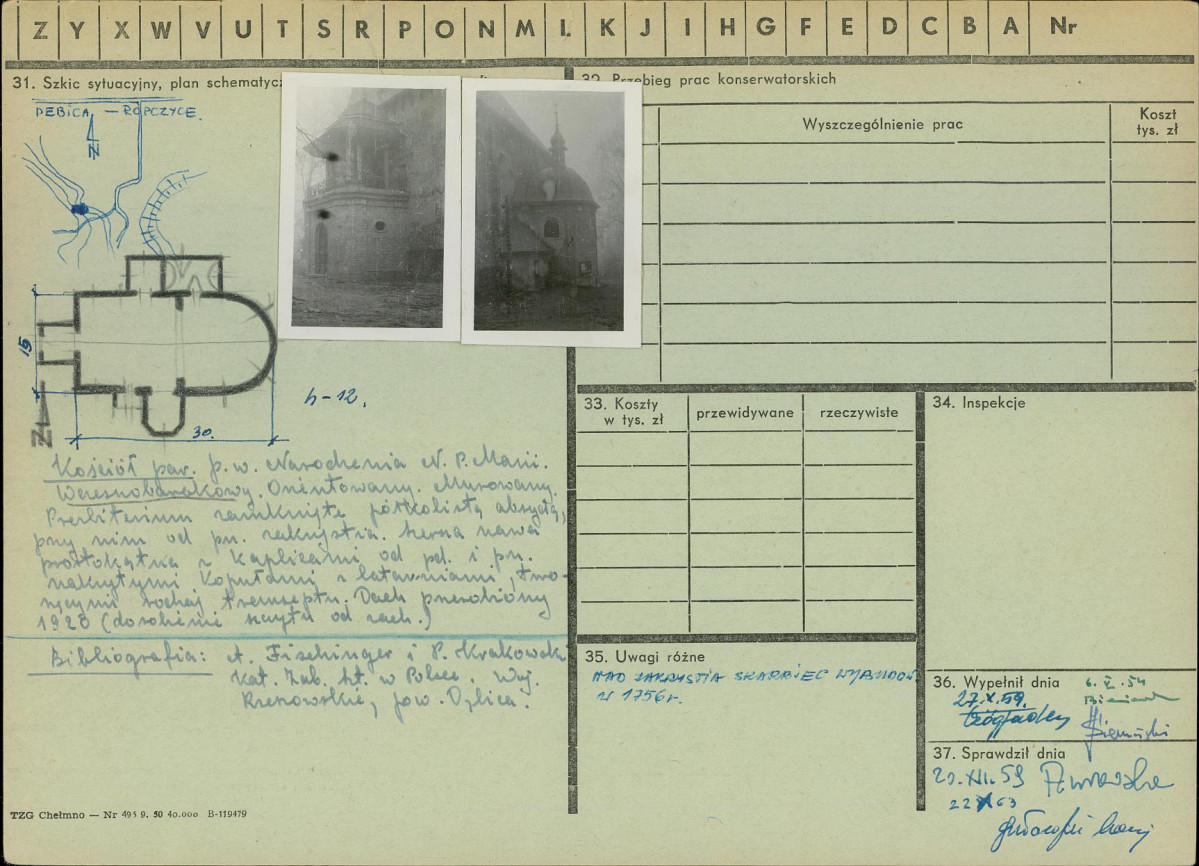 Z Y X W V U T S R P O N M L K J I H G F E D C B A Nr
31. Szkic sytuacyjny, plan schematyczny
DĘBICA — ROPCZYCE.
N
15
30.
h-12.
N
Kościół par. p.w. Narodzenia N. P. Marii.
Wczesnobarokowy. Orientowany. Murowany.
Prezbiterium zamknięte półkolistą absydą,
przy nim od pn. zakrystia. Szersza nawa
prostokątna z kaplicami od pd. i pn.
nakrytymi kopułami z latarniami, two-
rzącymi rodzaj transeptu. Dach przerobiony
1928 (dorobienie szczytu od zach.)
Bibliografia: A. Fischinger i P. Krakowski
Kat. Zab. Szt. w Polsce. Woj.
Rzeszowskie, pow. Dębica.
32. Przebieg prac konserwatorskich
Wyszczególnienie prac
Koszt
tys. zł
33. Koszty
w tys. zł
przewidywane
rzeczywiste
34. Inspekcje
35. Uwagi różne
NAD ZAKRYSTIA SKARBIEC WYBUDOW
W 1756 r.
36. Wypełnił dnia
27.X.59.
37. Sprawdził dnia
29.XII.59
22 X 63
TZG Chełmno — Nr 495 9. 50 40.000 B-119479